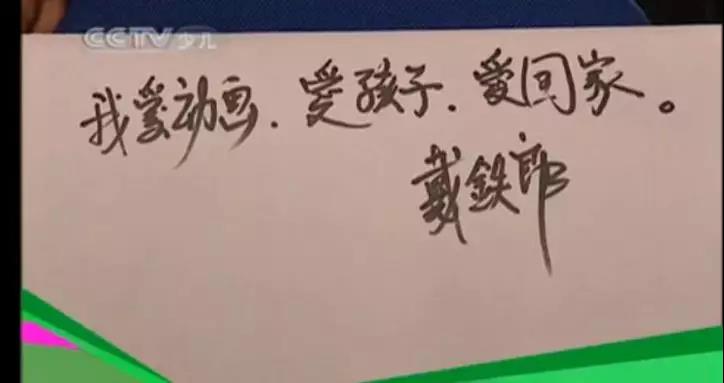 CCTV少儿
我爱动画.爱孩子.爱回家。
戴鉄郎